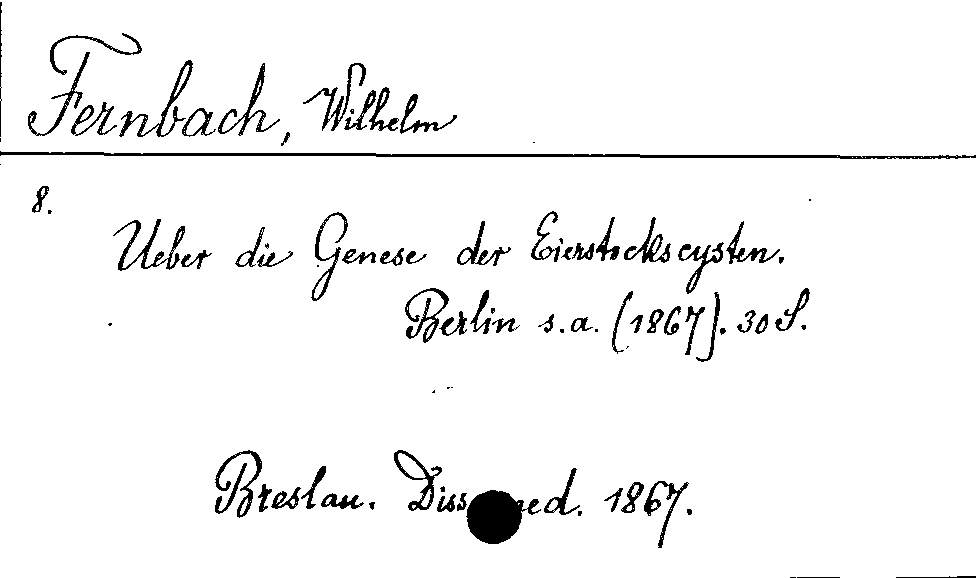 Fernbach, Wilhelm
8.
Ueber die Genese der Eierstockscysten.
Berlin s.a. (1867). 30 S.
Breslau. Diss. med. 1867.